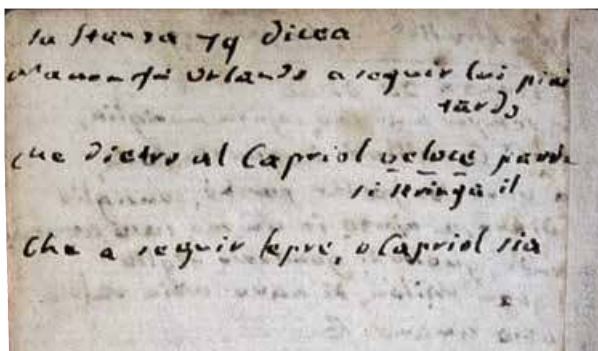 la stanza 19 dicea
Ma non fu Orlando a seguir lui più
tardo
che dietro al Capriol veloce pardo
si stringa il
Che a seguir lepre, o Capriol sia